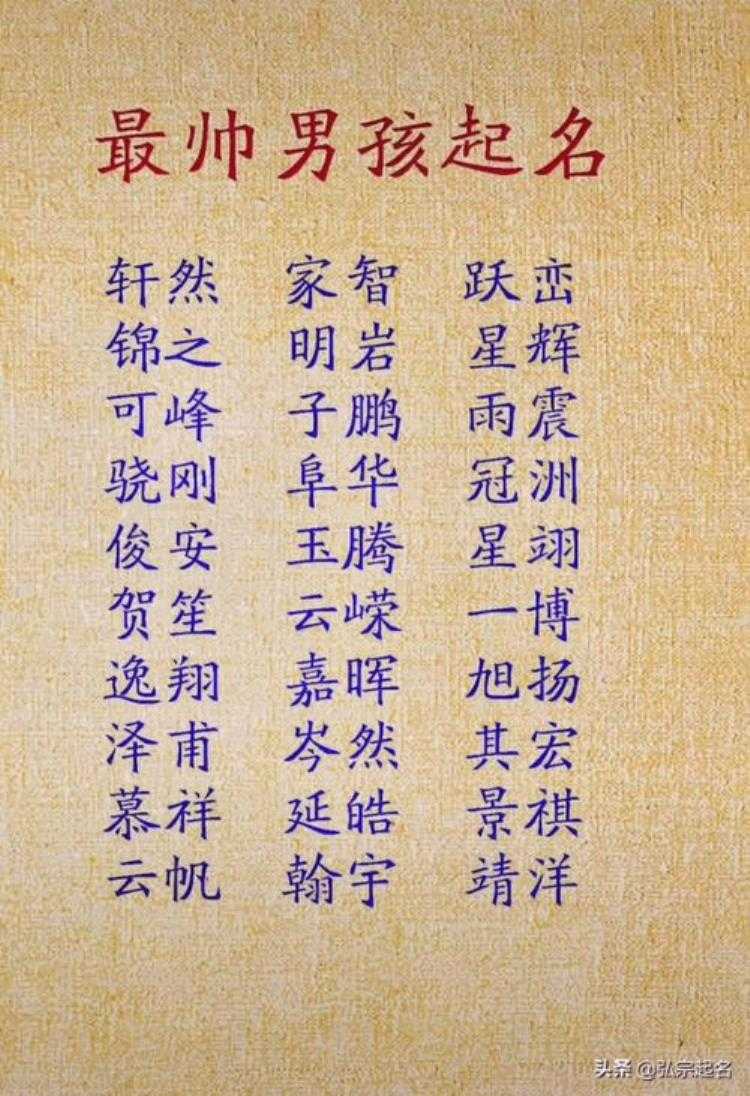 最帅男孩起名
轩然 家智 跃峦
锦之 明岩 星辉
可峰 子鹏 雨震
骁刚 阜华 冠洲
俊安 玉腾 星翊
贺笙 云嵘 一博
逸翔 嘉晖 旭扬
泽甫 岑然 其宏
慕祥 延皓 景祺
云帆 翰宇 靖洋
头条 @弘宗起名